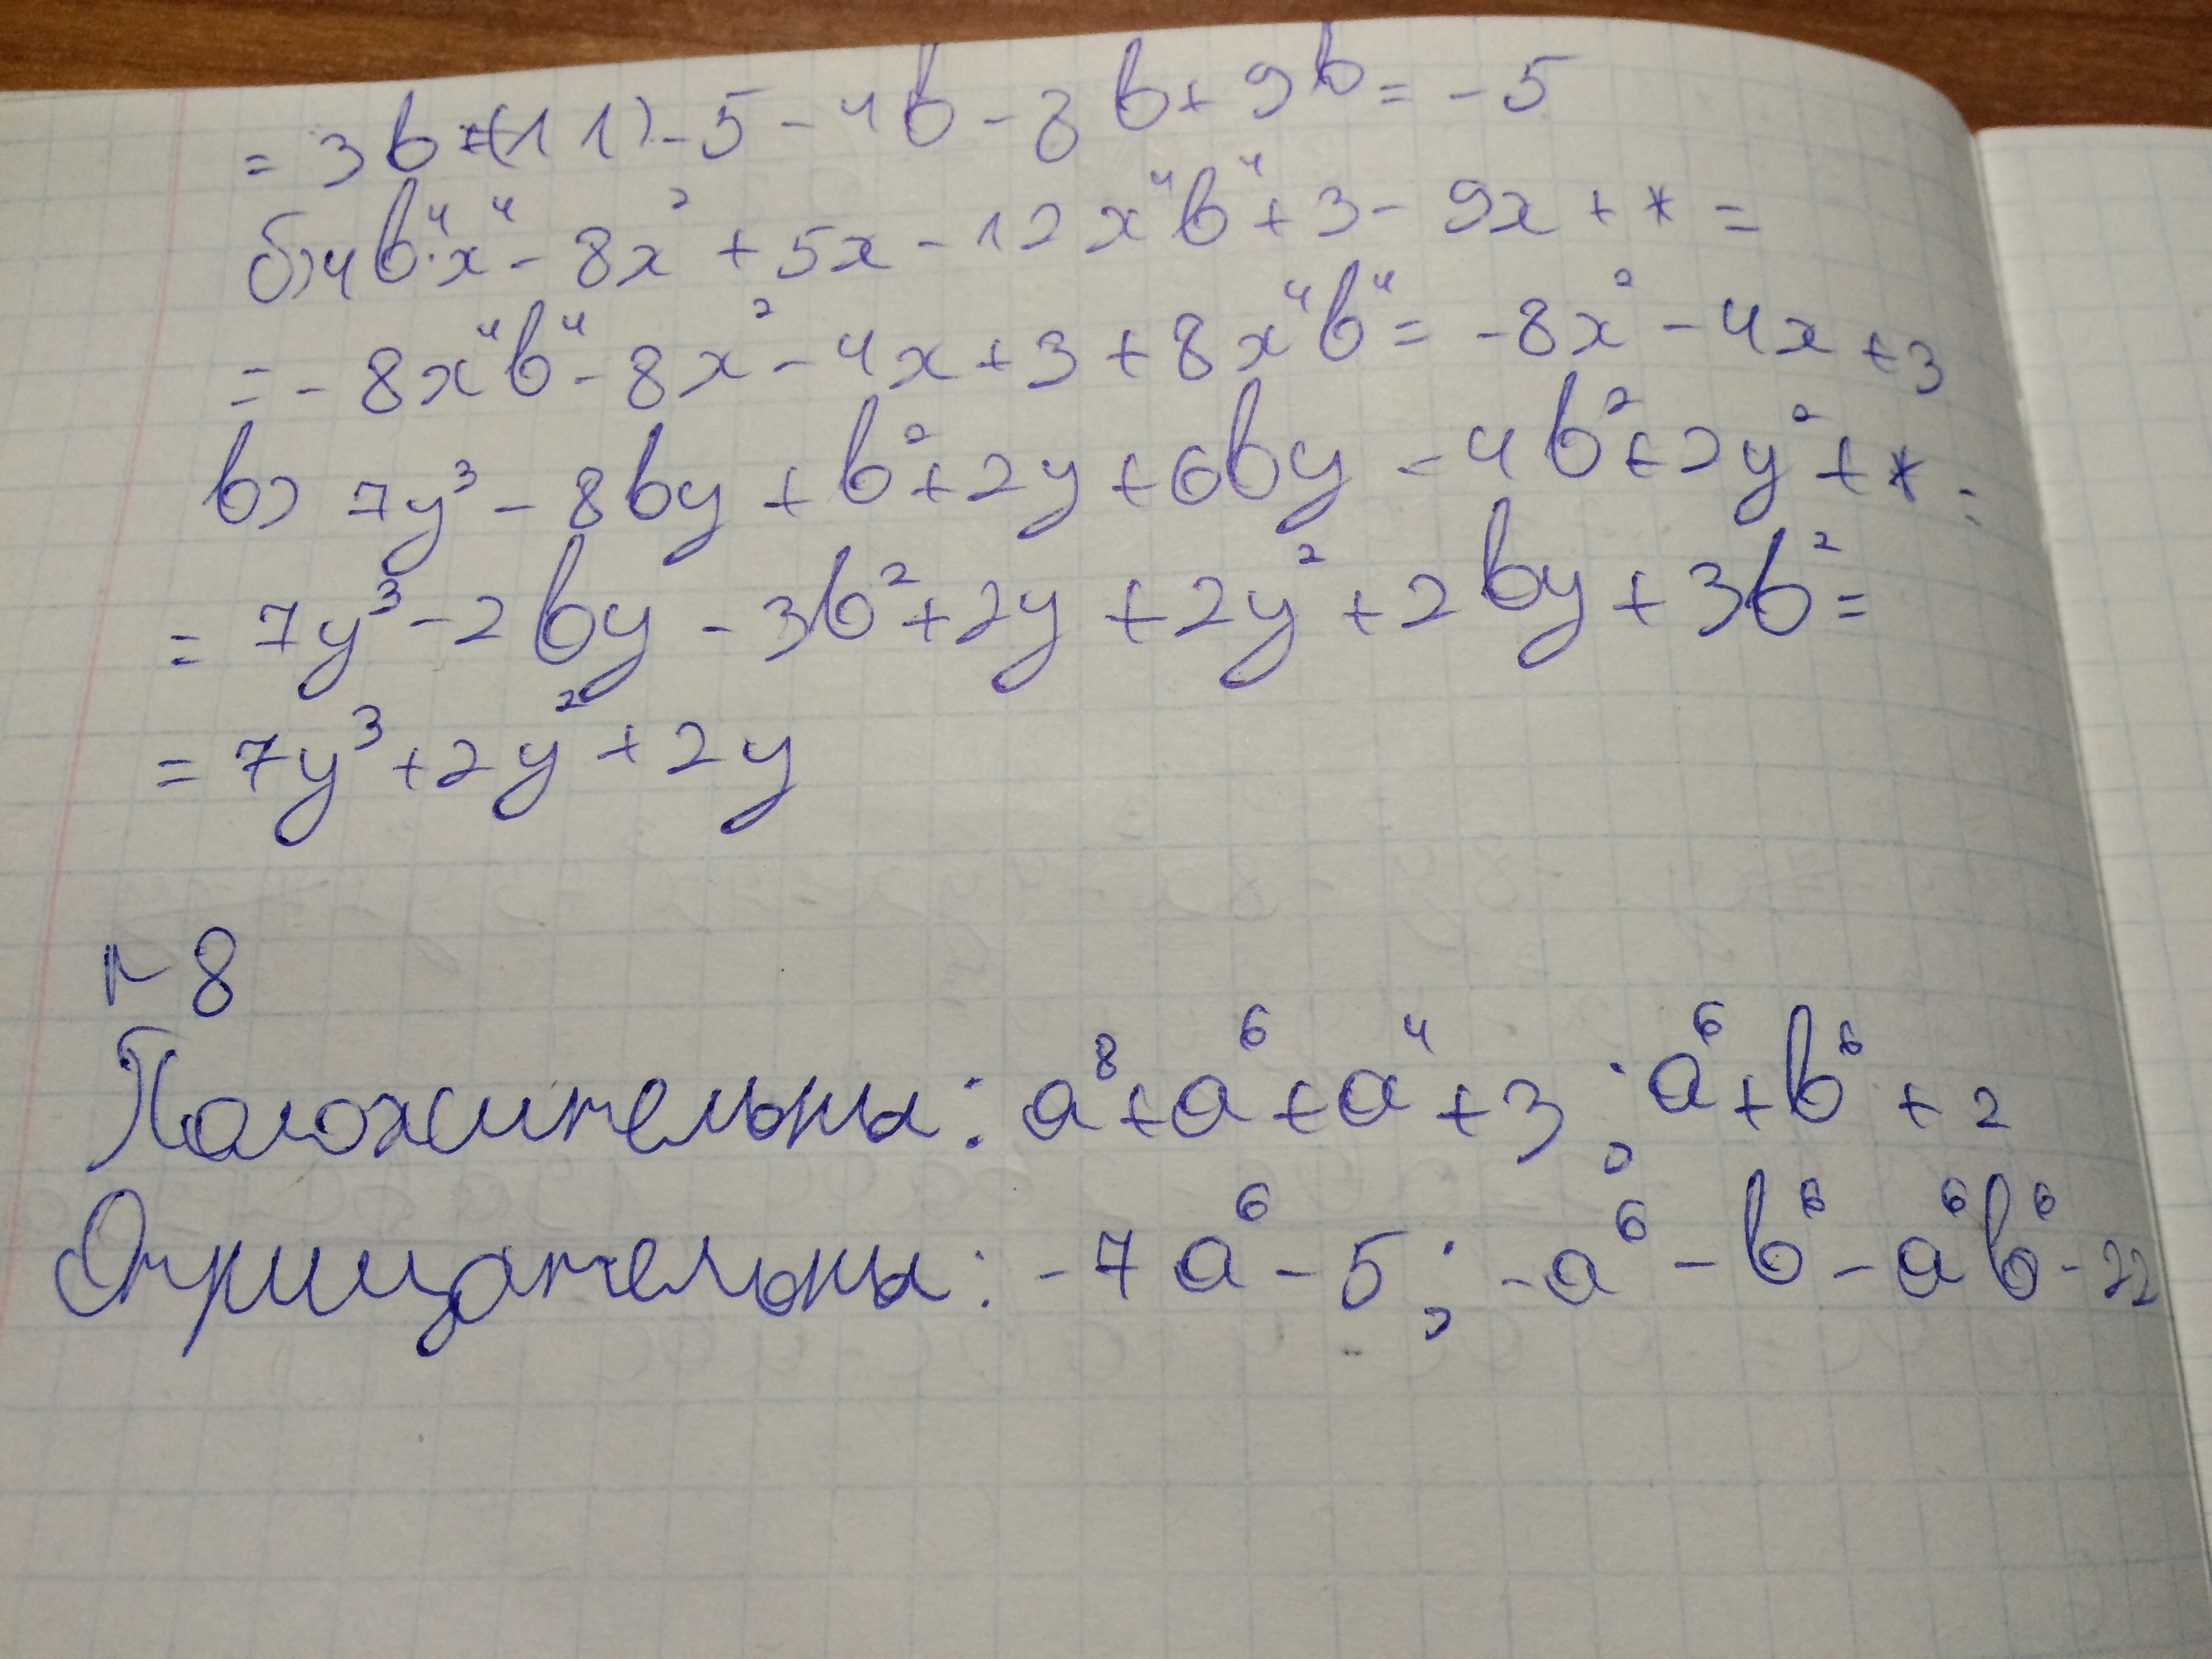 = 3b + (-11) - 5 - 4b - 8b + 9b = -5
б) 4b⁴·x⁴ - 8x² + 5x - 12x⁴b⁴ + 3 - 9x + * =
= -8x⁴b⁴ - 8x² - 4x + 3 + 8x⁴b⁴ = -8x² - 4x + 3
в) 7y³ - 8by + b² + 2y + 6by - 4b² + 2y² + * =
= 7y³ - 2by - 3b² + 2y + 2y² + 2by + 3b² =
= 7y³ + 2y² + 2y
№8
Положительны: a⁸ + a⁶ + a⁴ + 3; a⁶ + b⁶ + 2
Отрицательны: -7a⁶ - 5; -a⁶ - b⁶ - a⁶b⁶ - 22